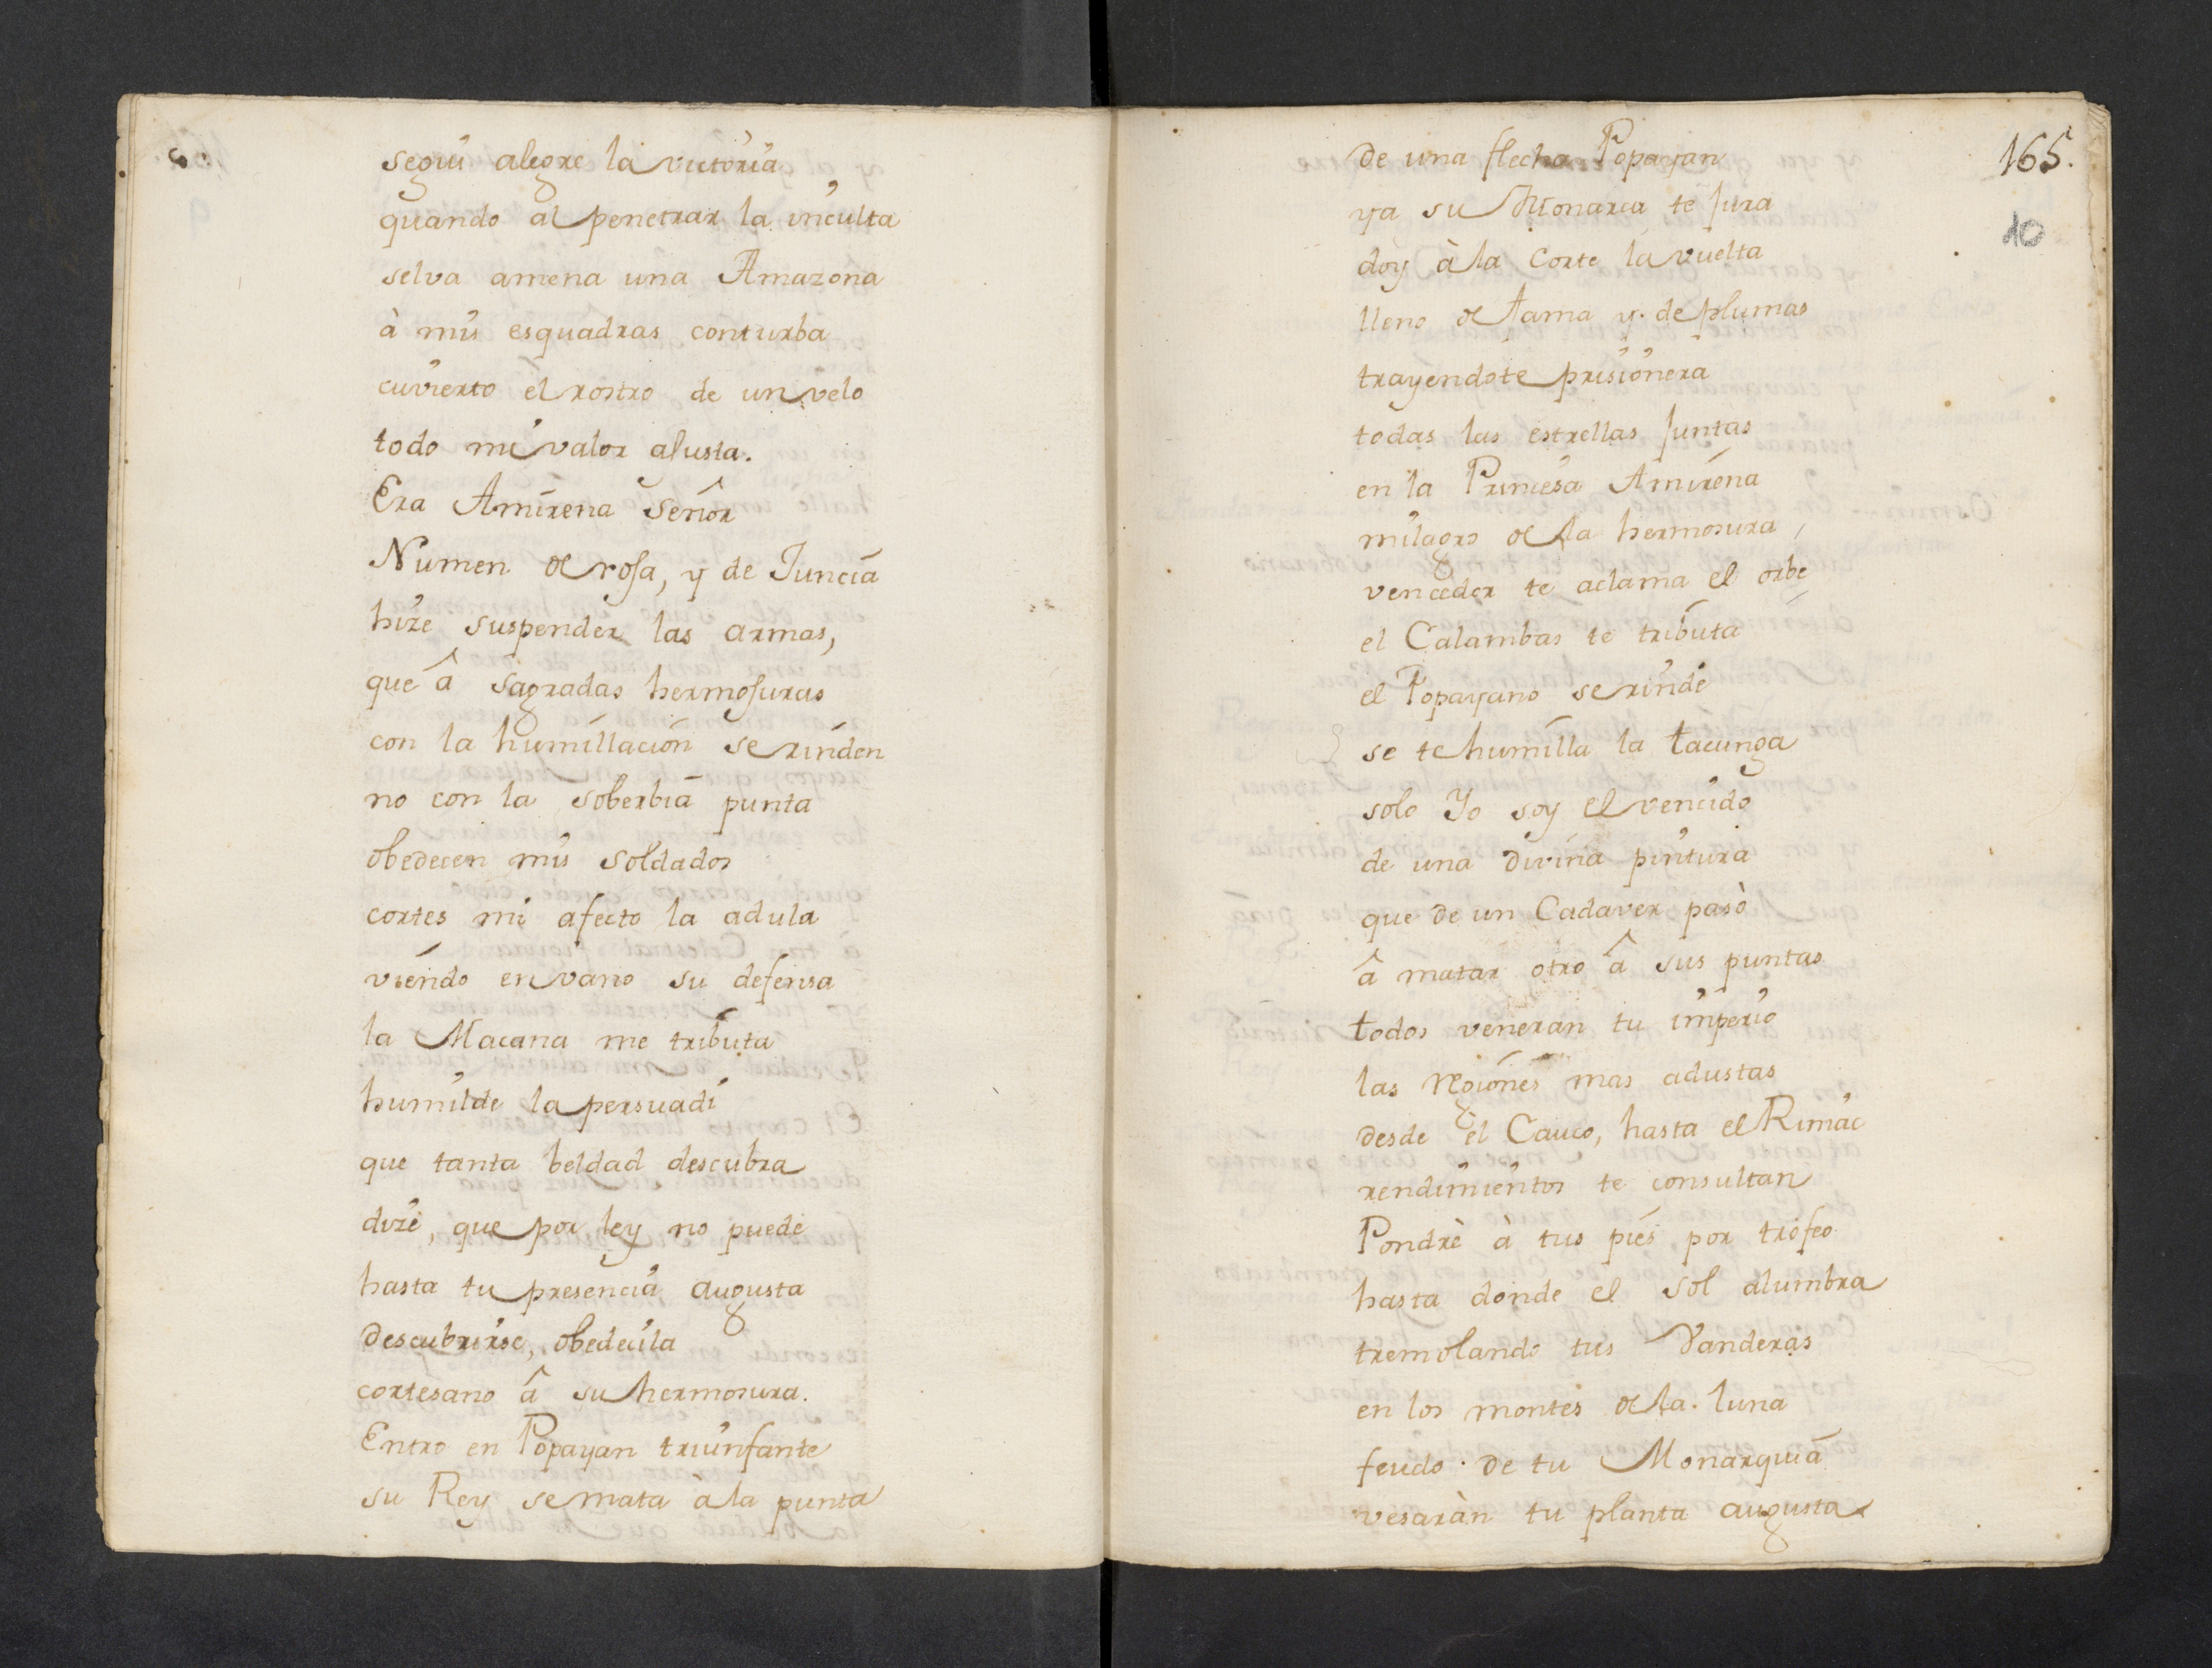 segui alegre la victoria
quando al penetrar la inculta
selva amena una Amazona
à mis esquadras conturba
cuvierto el rostro de un velo
todo mi valor asusta.
Era Amirena Señor
Numen de rosa, y de Juncia
hize suspender las armas,
que â sagradas hermosuras
con la humillacion se rinden
no con la soberbia punta
obedecen mis soldados
cortes mi afecto la adula
viendo en vano su defensa
la Macana me tributa
humilde la persuadi
que tanta beldad descubra
dize, que por ley no puede
hasta tu presencia augusta
descubrirse, obedecila
cortesano â su hermosura.
Entro en Popayan triunfante
su Rey se mata à la punta
165.
10
de una flecha Popayan
ya su Monarca te Jura
doy à la Corte la vuelta
lleno de fama y de plumas
trayendote prisionera
todas las estrellas Juntas
en la Princesa Amirena
milagro de la hermosura,
vencedor te aclama el orbe
el Calambas te tributa
el Popayano se rinde
se te humilla la tacunga
solo Yo soy el vencido
de una divina pintura
que de un Cadaver pasò
â matar otro â sus puntas
todos veneran tu imperio
las regiones mas adustas
desde el Cauco, hasta el Rimac
rendimientos te consultan
Pondrè à tus pies por trofeo
hasta donde el sol alumbra
tremolando tus Vanderas
en los montes de la luna
feudo de tu Monarquia
vesaràn tu planta augusta